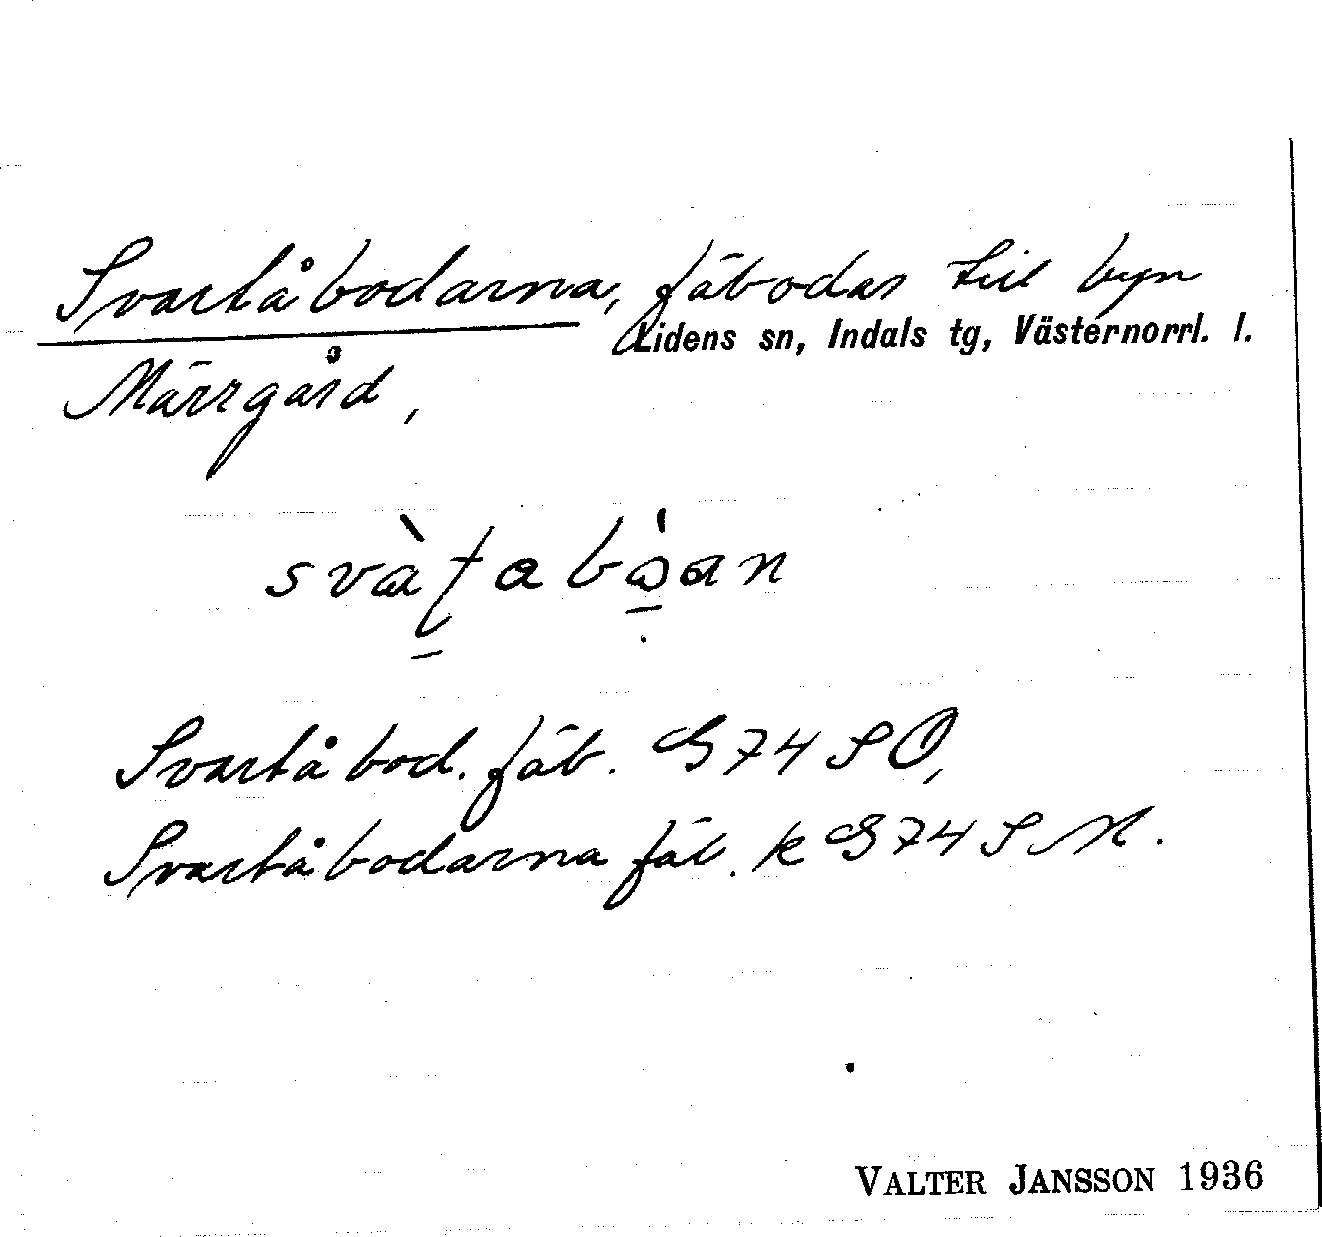 Svartåbodarna, fäbodar till byn
Lidens sn, Indals tg, Västernorrl. l.
Märrgård,
Svartåbod. fäb. G74SO,
Svartåbodarna fäb. k G74SM.
VALTER JANSSON 1936